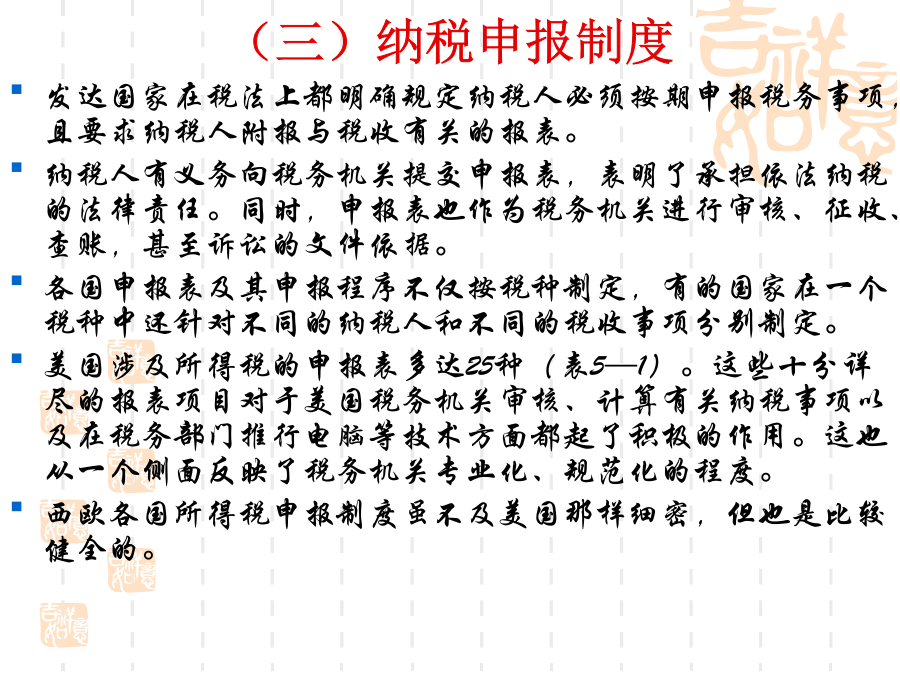 （三）纳税申报制度
发达国家在税法上都明确规定纳税人必须按期申报税务事项，
且要求纳税人附报与税收有关的报表。
纳税人有义务向税务机关提交申报表，表明了承担依法纳税
的法律责任。同时，申报表也作为税务机关进行审核、征收、
查账，甚至诉讼的文件依据。
各国申报表及其申报程序不仅按税种制定，有的国家在一个
税种中还针对不同的纳税人和不同的税收事项分别制定。
美国涉及所得税的申报表多达25种（表5—1）。这些十分详
尽的报表项目对于美国税务机关审核、计算有关纳税事项以
及在税务部门推行电脑等技术方面都起了积极的作用。这也
从一个侧面反映了税务机关专业化、规范化的程度。
西欧各国所得税申报制度虽不及美国那样细密，但也是比较
健全的。
吉祥如意
吉祥如意
吉祥如意
吉祥如意
吉祥如意
吉祥如意
吉祥如意
吉祥如意